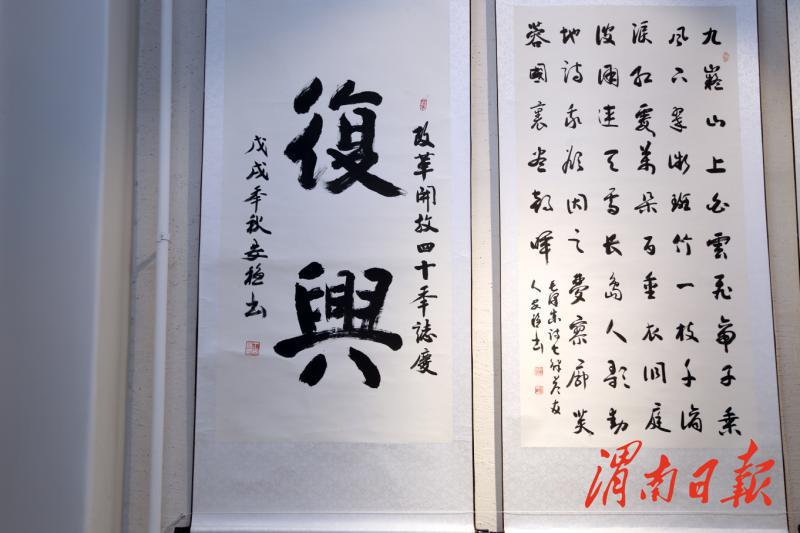 改革開放四十年誌慶
復興
戊戌年秋安穩书
九嶷山上白雲飛帝子乘
风下翠微斑竹一枝千滴
淚红霞萬朵百重衣洞庭
波涌連天雪長島人歌動
地詩我欲因之夢寥廓芙
蓉國裏盡朝暉
毛澤東詩七律答友
人安穩书
渭南日報